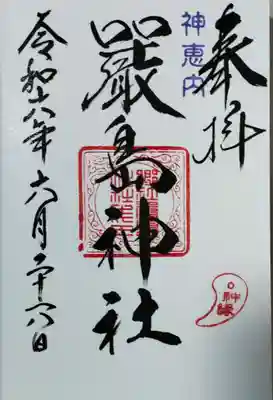 奉拝
神恵内
厳島神社
令和六年六月二十六日
神縁